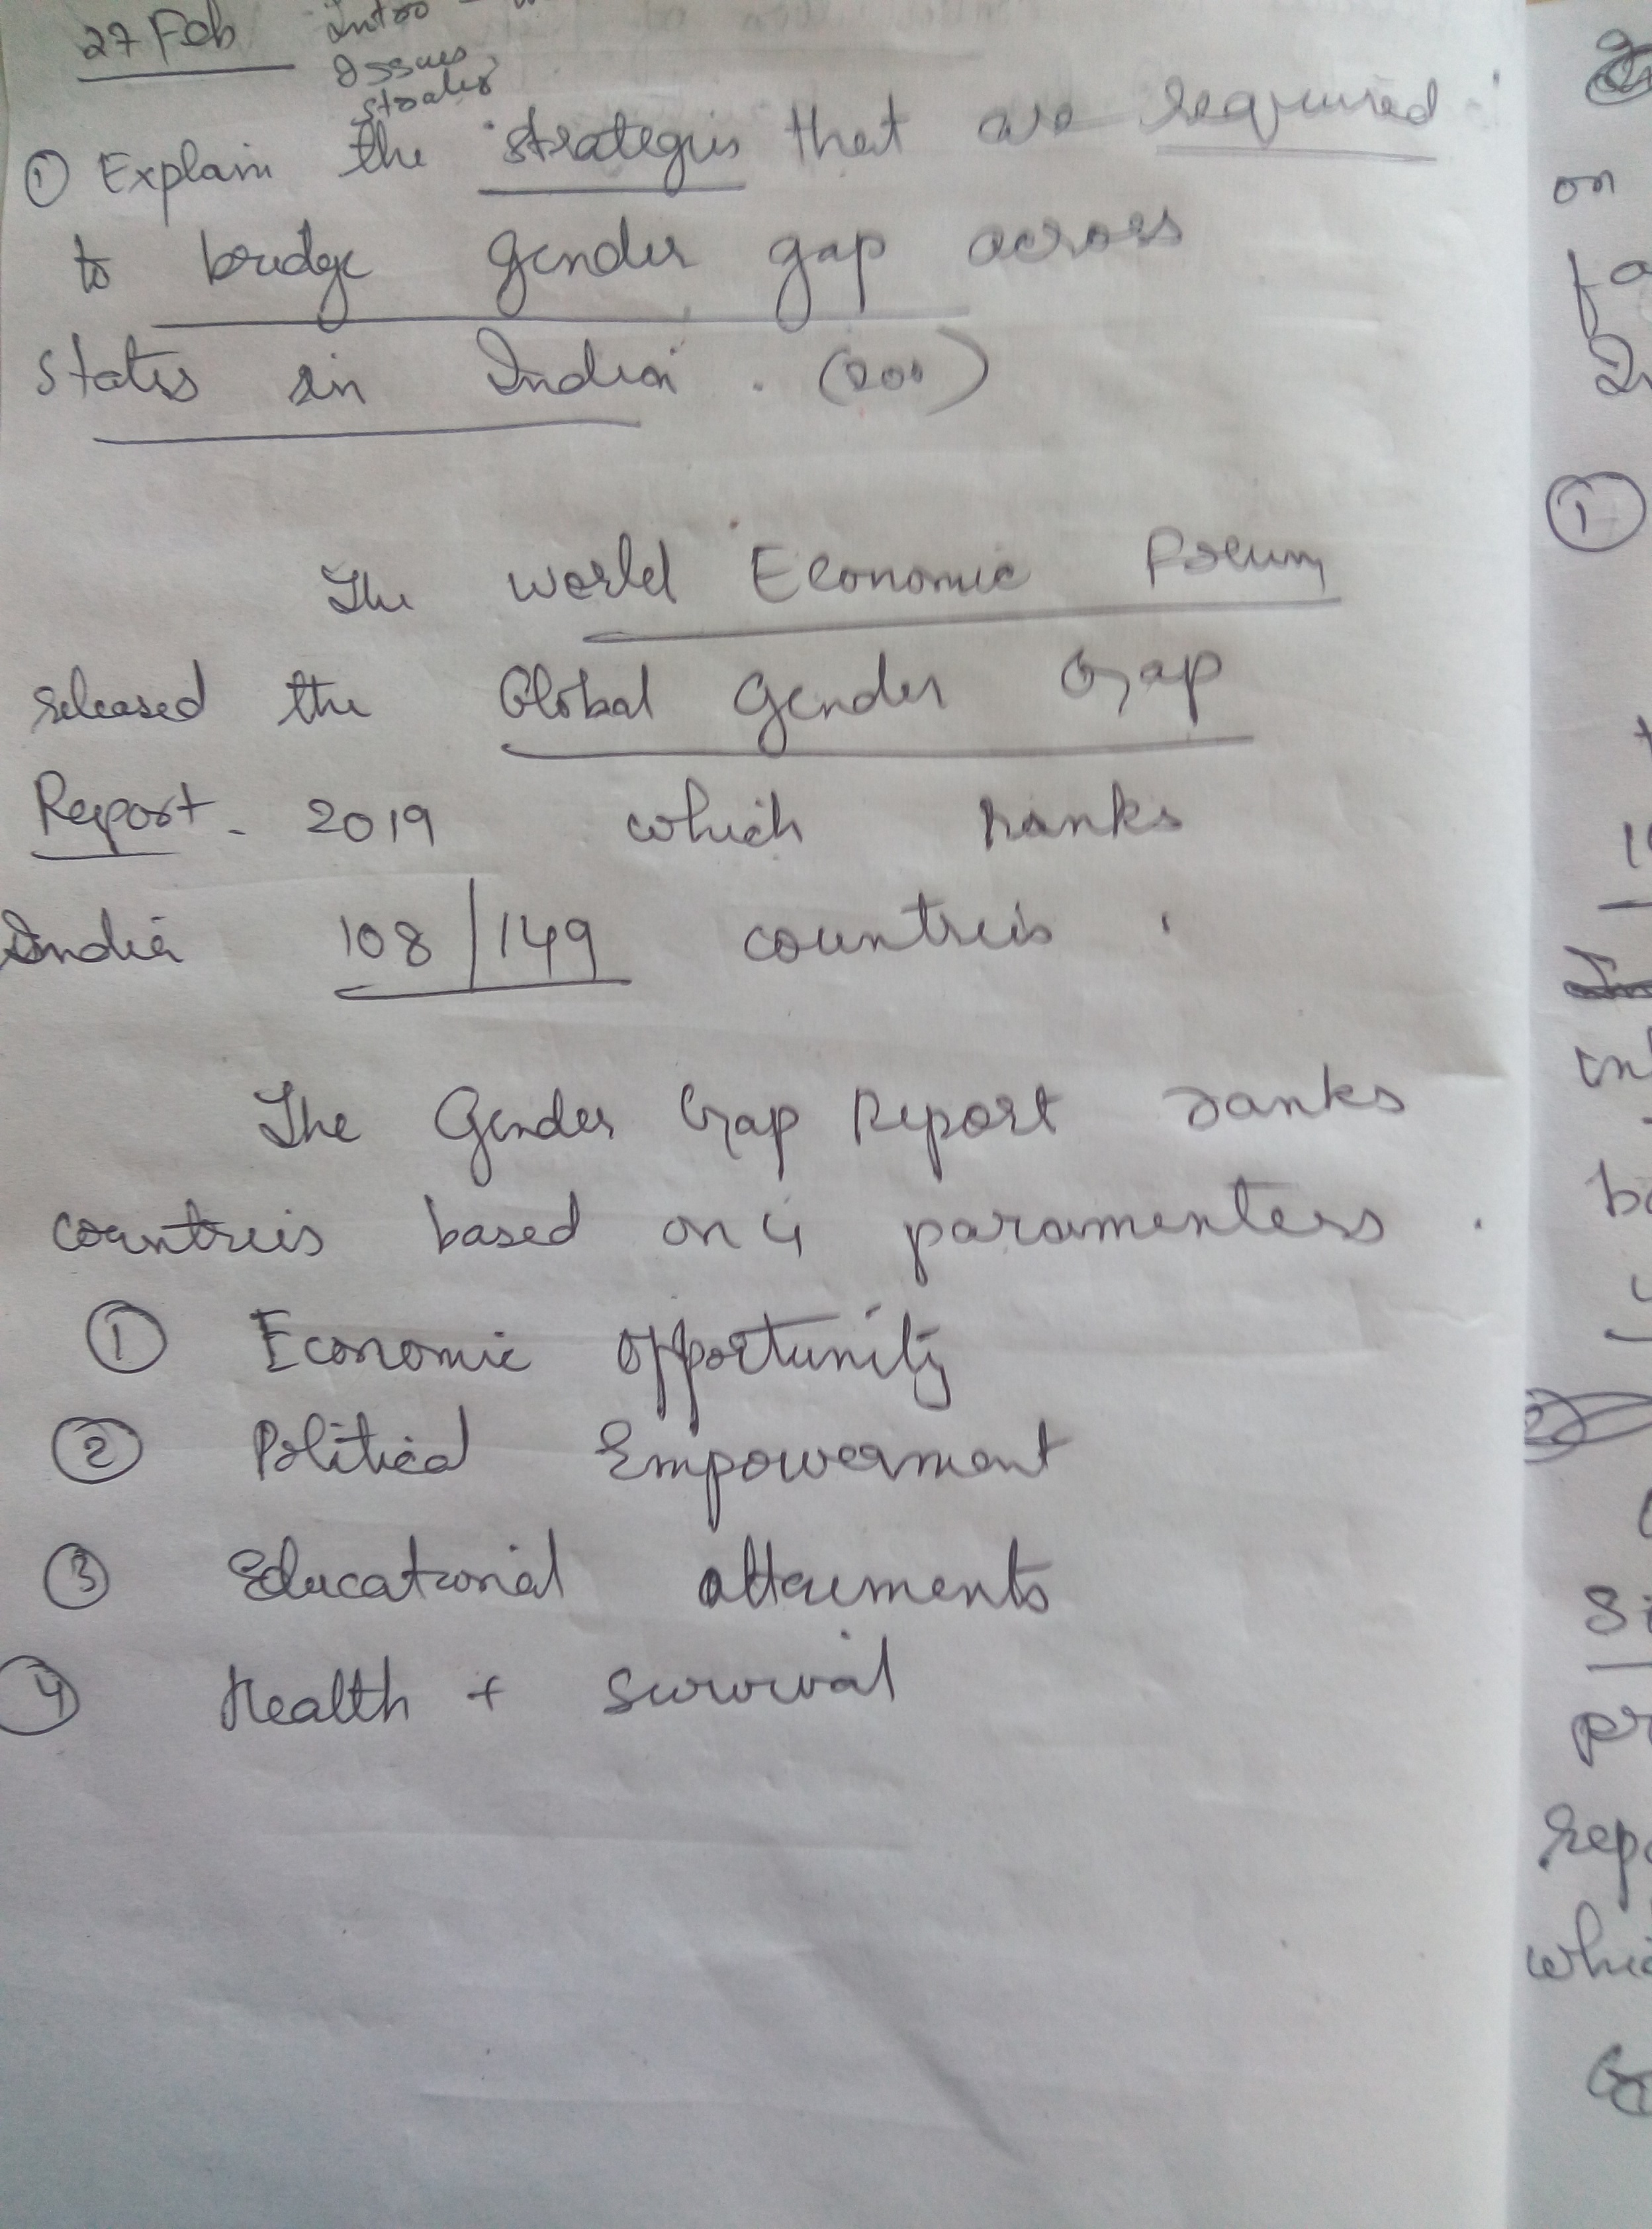 27 Feb
Intro
Issues
①Explain the strategies that are required
to bridge gender gap across
states in India. (200)
The World Economic Forum
released the Global Gender Gap
Report - 2019 which ranks
India 108/149 countries.
The Gender Gap Report ranks
countries based on 4 paramenters.
① Economic opportunity
② Political Empowerment
③ Educational attaiments
④ Health + Survival
on
①
②
whi